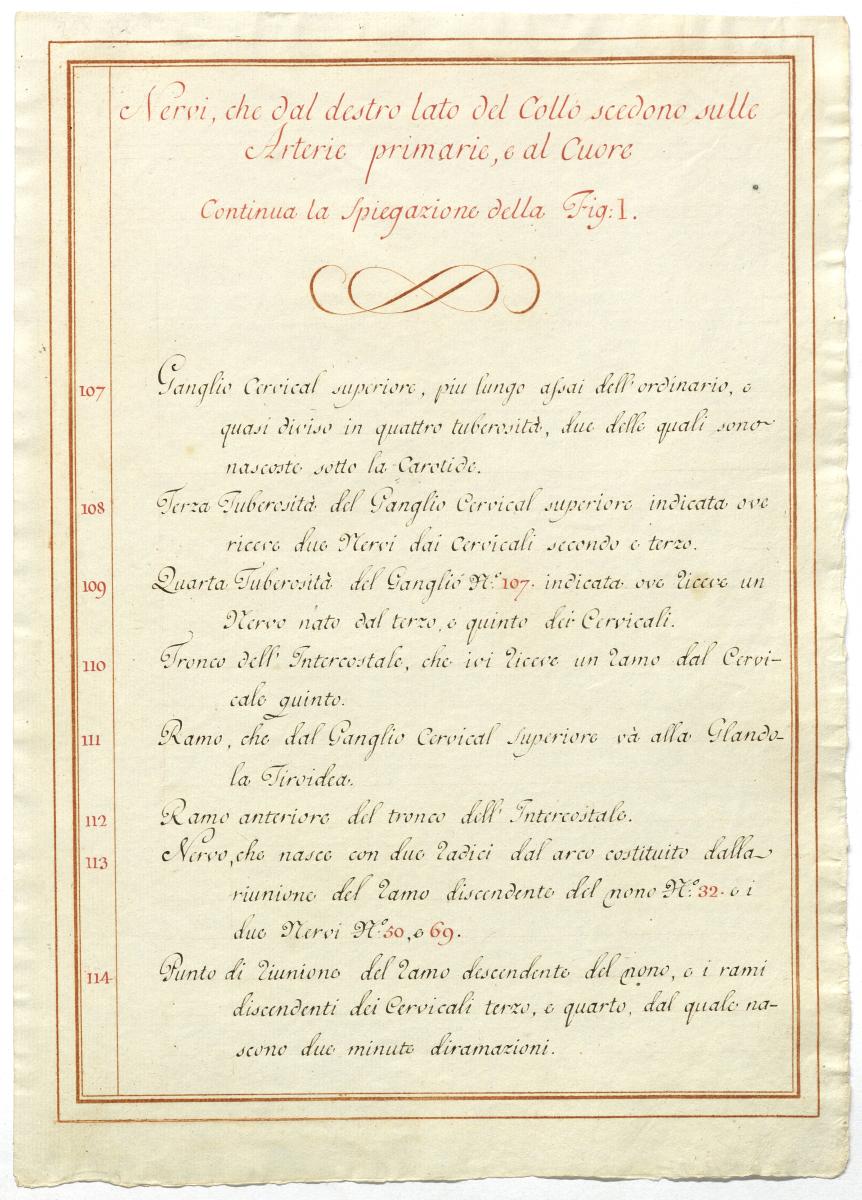 Nervi, che dal destro lato del Collo scedono sulle
Arterie primarie, e al Cuore
Continua la Spiegazione della Fig: 1.
107 Ganglio Cervical superiore, piu lungo assai dell'ordinario, e
quasi diviso in quattro tuberosità, due delle quali sono
nascoste sotto la Carotide.
108 Terza Tuberosità del Ganglio Cervical superiore indicata ove
riceve due Nervi dai Cervicali secondo e terzo.
109 Quarta Tuberosità del Ganglio N.° 107. indicata ove riceve un
Nervo nato dal terzo, e quinto dei Cervicali.
110 Tronco dell'Intercostale, che ivi riceve un ramo dal Cervi-
cale quinto.
111 Ramo, che dal Ganglio Cervical Superiore và alla Glando-
la Tiroidea.
112 Ramo anteriore del tronco dell'Intercostale.
113 Nervo, che nasce con due radici dal arco costituito dalla
riunione del ramo discendente del nono N.° 32. e i
due Nervi N.° 50, e 69.
114 Punto di riunione del ramo descendente del nono, e i rami
discendenti dei Cervicali terzo, e quarto, dal quale na-
scono due minute diramazioni.